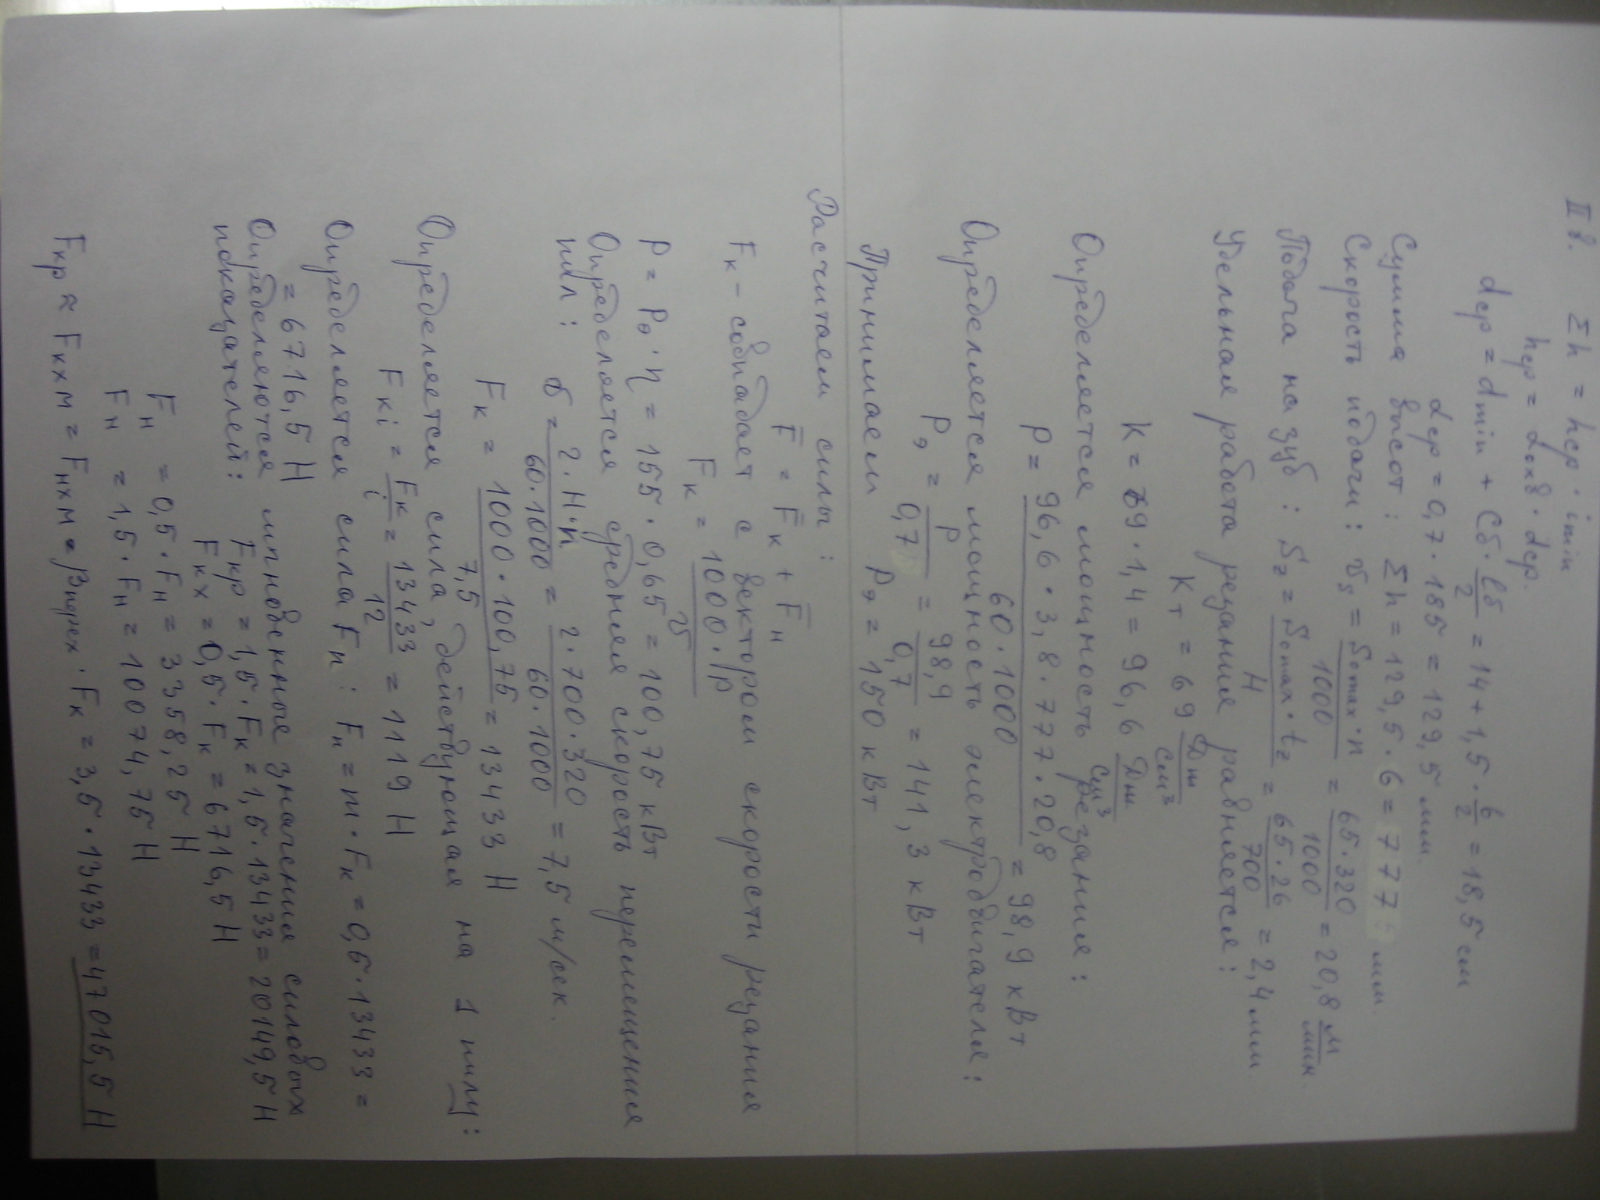 II в. Σh = hср · imin
hср = Lохв · dср.
dср = dmin + Cб · lб/2 = 14 + 1,5 · 6/2 = 18,5 см
Lср = 0,7 · 185 = 129,5 мм.
Сумма высот: Σh = 129,5 · 6 = 777 мм.
Скорость подачи: υs = Somax · n / 1000 = 65·320 / 1000 = 20,8 м/мин.
Подача на зуб: Sz = Somax · tz / H = 65·26 / 700 = 2,4 мм.
Удельная работа резания равняется:
Kт = 69 Дж/см³
K = 69 · 1,4 = 96,6 Дж/см³
Определяется мощность резания:
P = 96,6 · 3,8 · 777 · 20,8 / 60·1000 = 98,9 кВт
Определяется мощность электродвигателя:
Pэ = P / 0,7 = 98,9 / 0,7 = 141,3 кВт
Принимаем Pэ = 150 кВт
Расчитаем силы:
F̄ = F̄к + F̄н
Fк – совпадает с вектором скорости резания
Fк = 1000 · P / υ
P = Pэ · η = 155 · 0,65 = 100,75 кВт
Определяется средняя скорость перемещения
пил: υ = 2·H·n / 60·1000 = 2·700·320 / 60·1000 = 7,5 м/сек.
Fк = 1000 · 100,75 / 7,5 = 13433 Н
Определяется сила, действующая на 1 пилу:
Fкi = Fк / i = 13433 / 12 = 1119 Н
Определяется сила Fн: Fн = m · Fк = 0,5 · 13433 =
= 6716,5 Н
Определяются мгновенное значения силовых
показателей: Fкр = 1,5 · Fк = 1,5 · 13433 = 20149,5 Н
Fкх = 0,5 · Fк = 6716,5 Н
Fн = 0,5 · Fн = 3358,25 Н
Fн = 1,5 · Fн = 10074,75 Н
Fкр ≈ Fкхм = Fнхм = · Fк = 3,5 · 13433 = 47015,5 Н